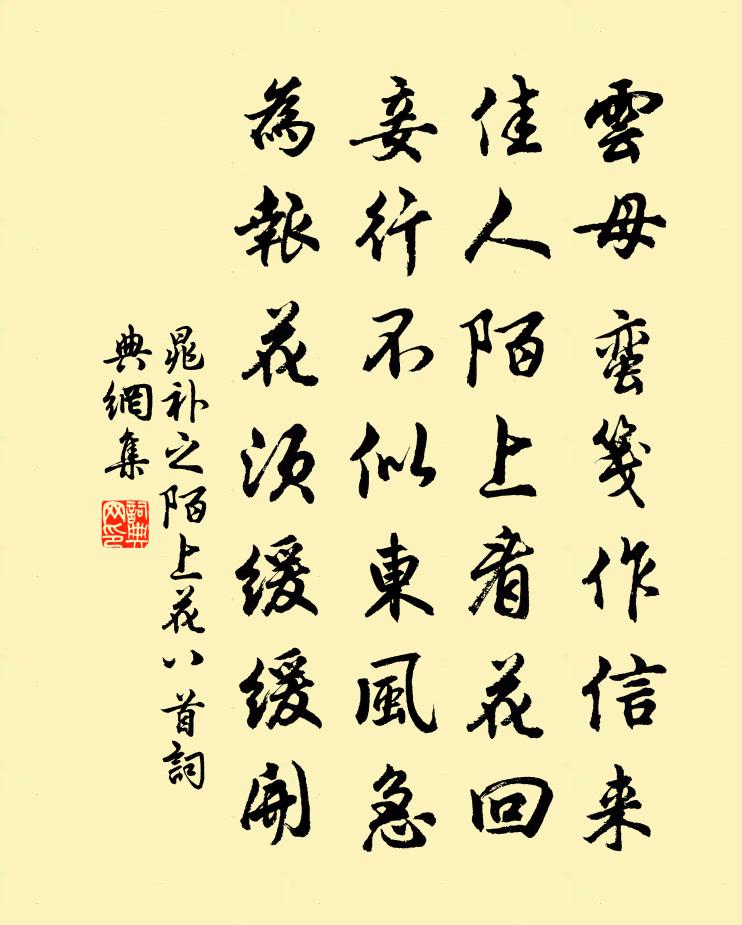 雲母蛮箋作信来
佳人陌上看花回
妾行不似東風急
為報花須緩緩開
晁补之陌上花八首詞
典網集
詞典
网印